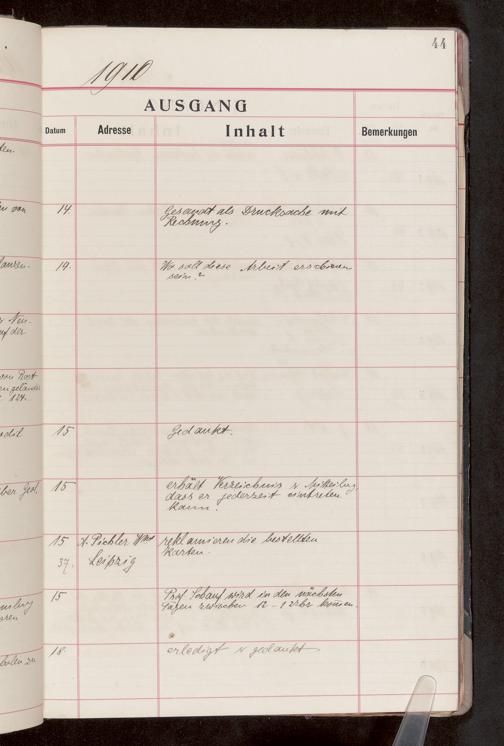 ten.
en von
44
1910
AUSGANG
Datum Adresse Inhalt Bemerkungen
14 Gesandt als Drucksache mit
Rechnung.
14. Wo soll diese Arbeit erschienen
sein?
15 Gedankt.
15 erhält Verzeichnis u Mitteilung,
dass er jederzeit eintreten
kann.
15 A. Pichler Wwe reklamieren die bestellten
37. Leipzig Karten.
15 Prof. wird in den nächsten
Tagen zwischen 12 - 1 Uhr kommen.
18. erledigt u gedankt